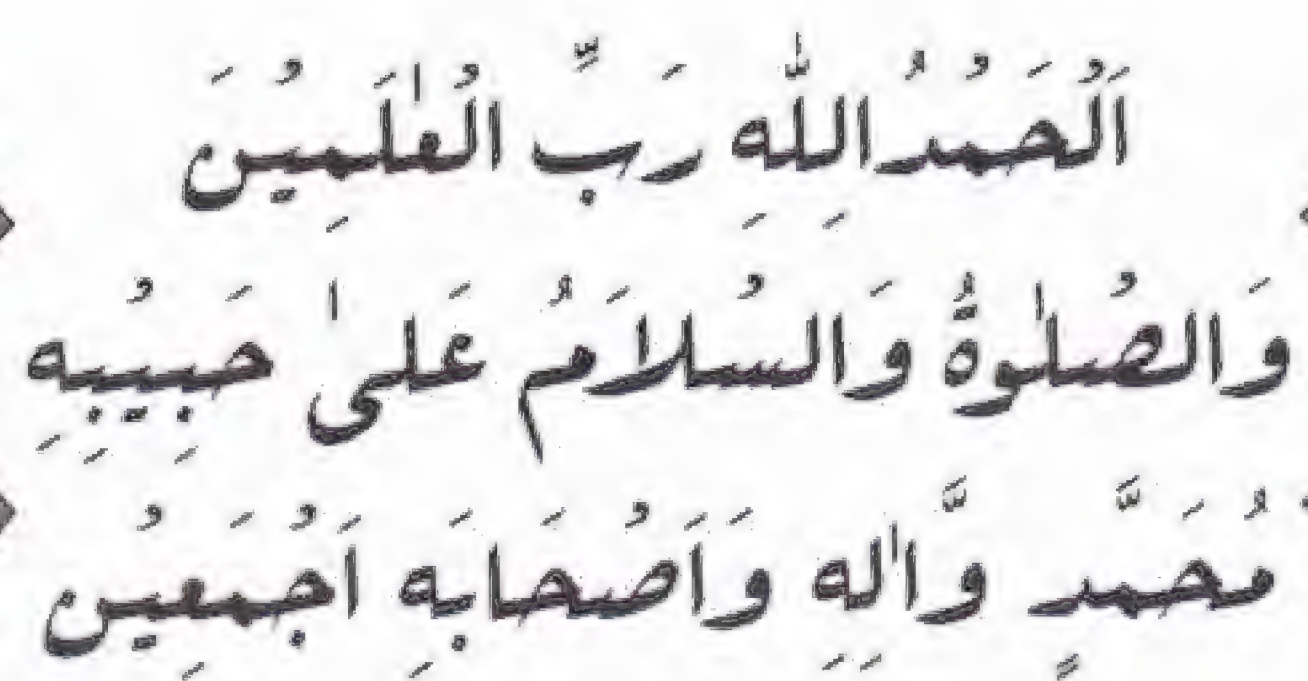 اَلْحَمْدُاللّٰهِ رَبِّ الْعٰلَمِيْنَ
وَالصْلٰوةُ وَالسْلاَمُ عَلىٰ حَبِيْبِهِ
مُحَمَّدٍ وَّاٰلِهِ وَاَصْحَابَهِ اَجْمَعِيْنَ